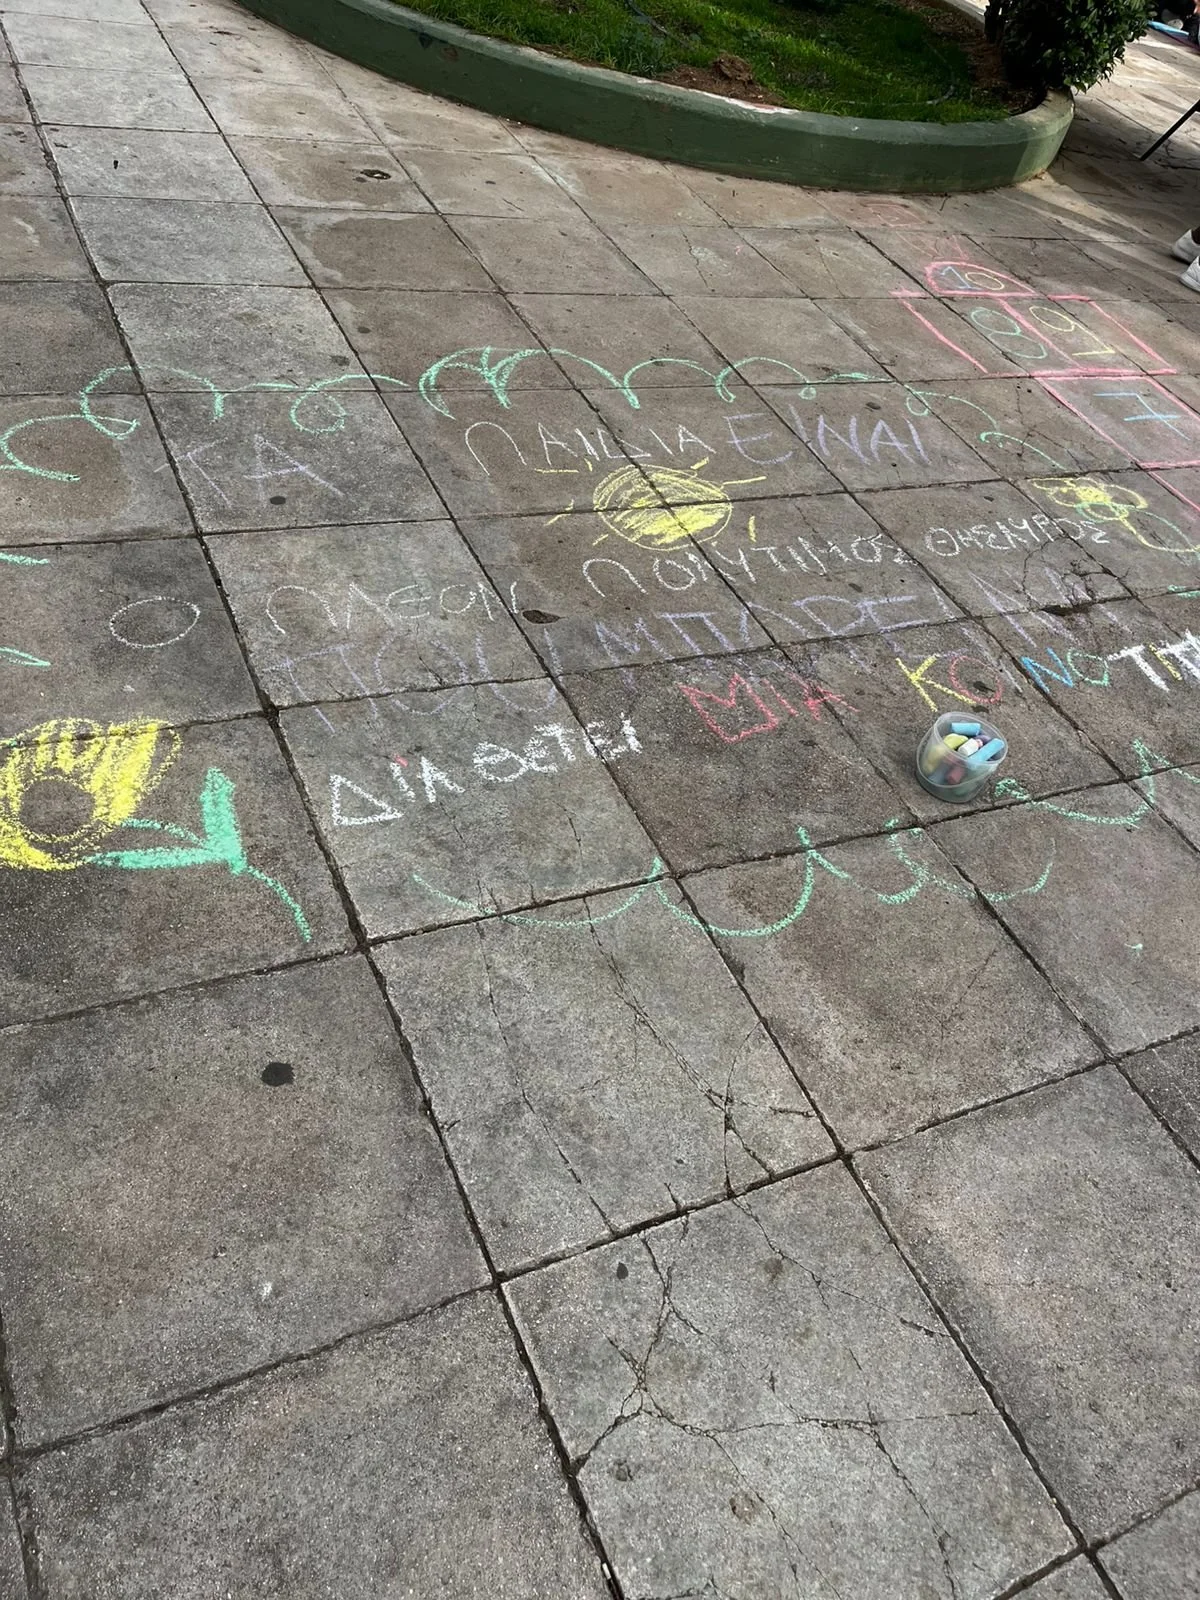 10
8 9
7
ΤΑ ΠΑΙΔΙΑ ΕΙΝΑΙ
Ο ΠΛΕΟΝ ΠΟΛΥΤΙΜΟΣ ΘΗΣΑΥΡΟΣ
ΠΟΥ ΜΠΟΡΕΙ ΝΑ
ΔΙΑΘΕΤΕΙ ΜΙΑ ΚΟΙΝΟΤΗΤ